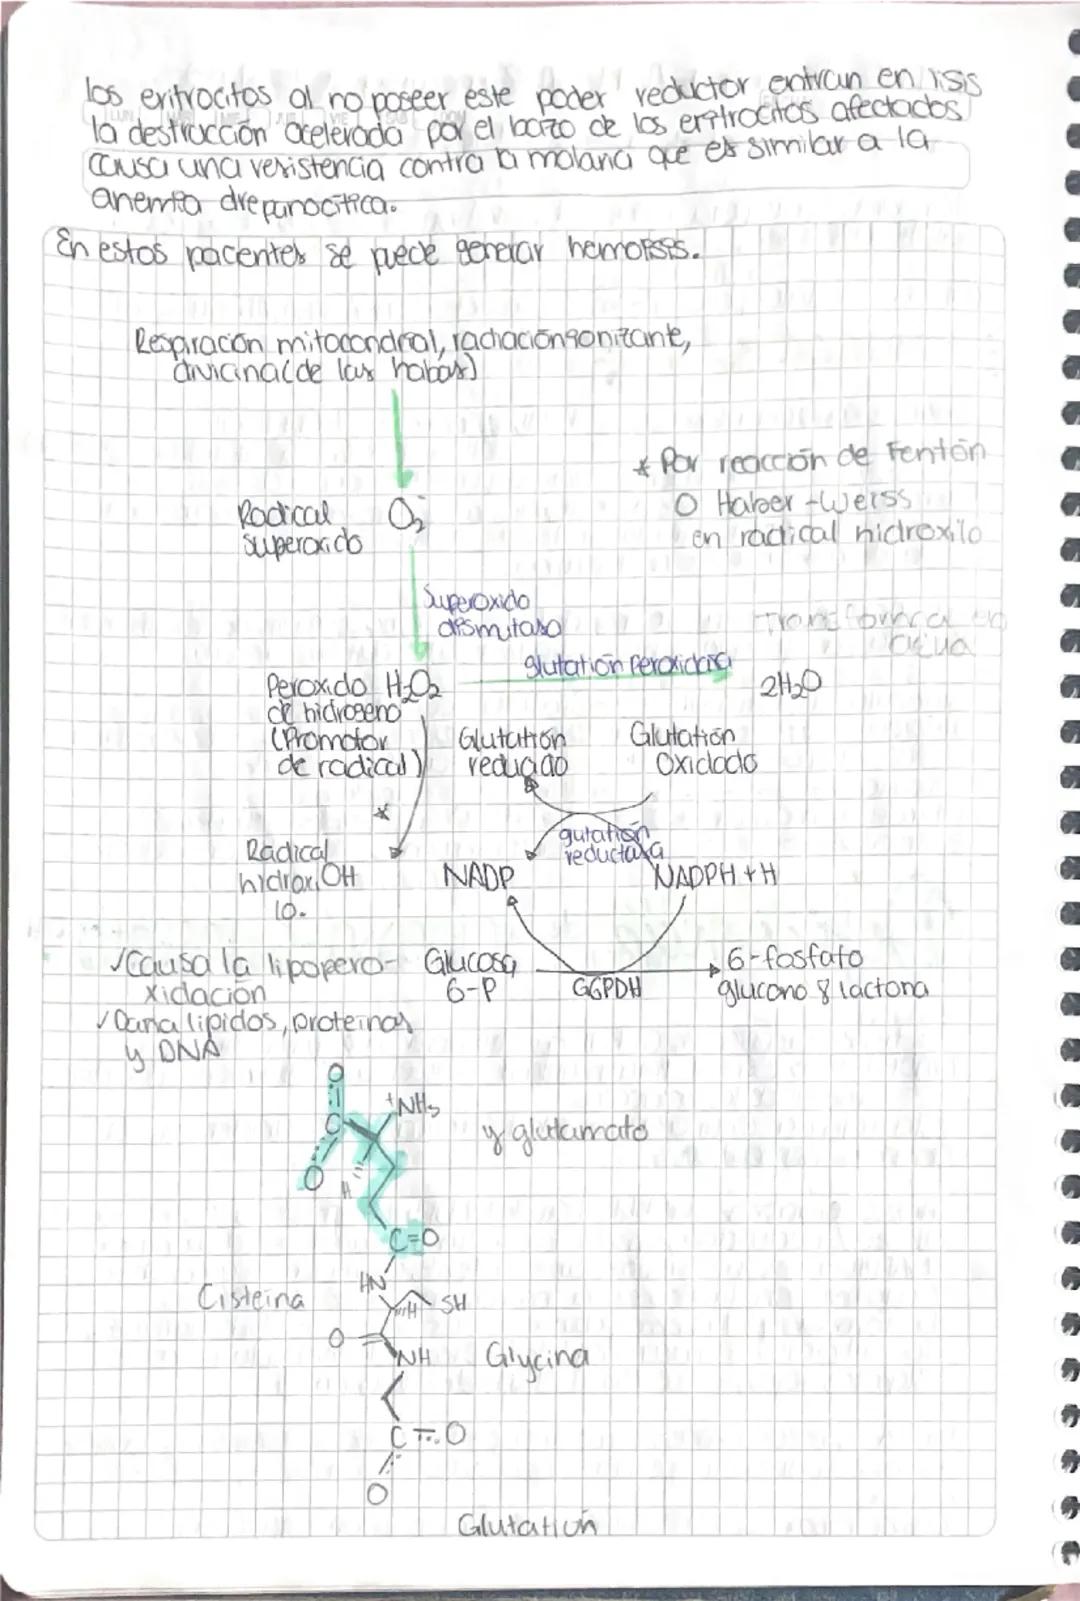 los eritrocitos al no poseer este poder reductor entran en lisis
la destrucción acelerada por el bazo de los eritrocitos afectados
causa una resistencia contra la malaria que es similar a la
anemia drepanocitica.
En estos pacientes se puede generar hemolisis.
Respiración mitocondrial, radiación ionizante,
divicina (de las habas)
* Por reacción de Fentón
O Haber-Weiss
en radical hidroxilo
Radical O₂⁻
superoxido
Superoxido
dismutasa
Transforma en
agua
glutatión peroxidasa
Peroxido H₂O₂ 2H₂O
de hidrogeno
(Promotor
de radical)
Glutatión Glutatión
reducido Oxidado
*
glutatión
reductasa
Radical
hidroxi OH
lo.
NADP NADPH + H
✓Causa la lipopero-
xidación
Glucosa 6-fosfato
6-P G6PDH glucono δ lactona
✓Daña lipidos, proteinas
y DNA
O
⁺NH₃
C
γ glutamato
O H
C=O
HN
Cisteina H SH
O
NH Glycina
C O
O
Glutatión